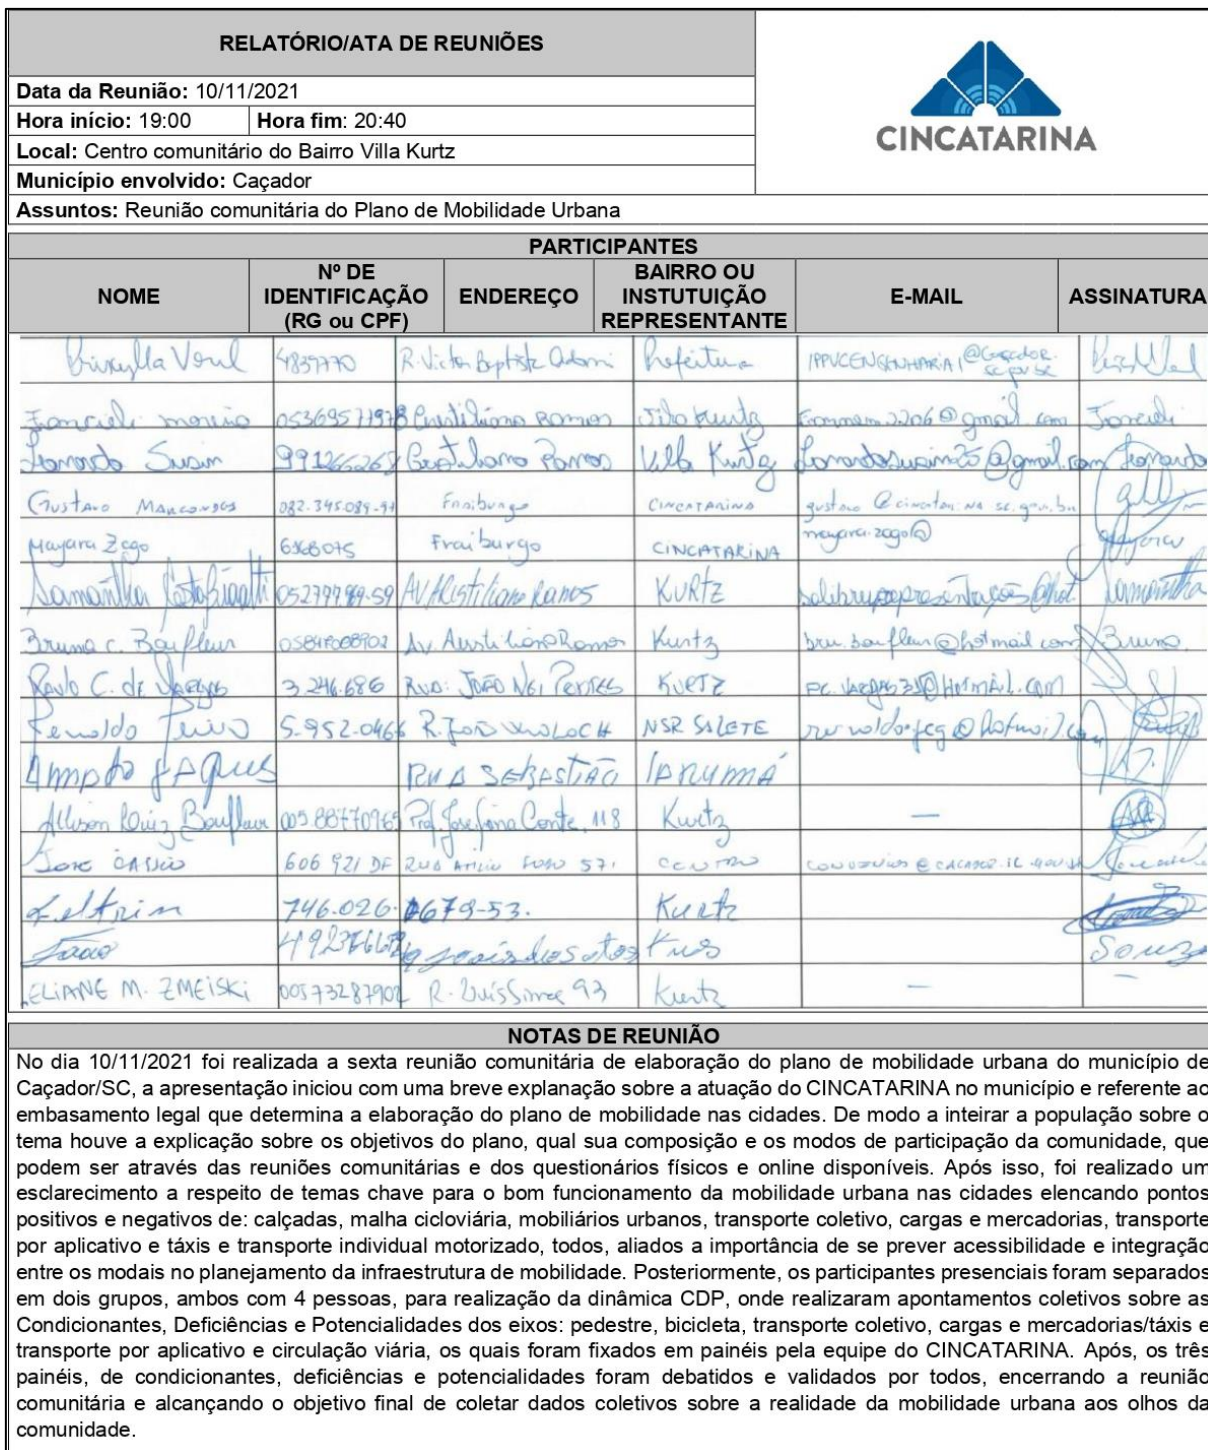 RELATÓRIO/ATA DE REUNIÕES
Data da Reunião: 10/11/2021
Hora início: 19:00 Hora fim: 20:40
Local: Centro comunitário do Bairro Villa Kurtz
Município envolvido: Caçador
Assuntos: Reunião comunitária do Plano de Mobilidade Urbana
CINCATARINA
PARTICIPANTES
NOME Nº DE IDENTIFICAÇÃO (RG ou CPF) ENDEREÇO BAIRRO OU INSTUTUIÇÃO REPRESENTANTE E-MAIL ASSINATURA
4839770 R. Victor Baptista Adami Prefeitura
Ramos Kurtz Francieli
Leonardo Susin Ramos Villa Kurtz Leonardo
Gustavo Marcondes Fraiburgo CINCATARINA
Mayara Zago Fraiburgo CINCATARINA mayara.zago@
Samantha Ramos KURTZ Samantha
Bruna C. Baufleur 05847008902 Av. Ramos Kurtz Bruna
Paulo C. de Vargas 3.246.686 Rua: João Nei KURTZ
R. João NSR SALETE
RUA SEBASTIÃO
Allison Luiz Baufleur Prof. Josefina Conte, 118 Kurtz —
José Cássio 606 921 DF Rua 571 CENTRO
Feltrin Kurtz
João Souza
ELIANE M. ZMEISKI 00573287902 R. 93 Kurtz — —
NOTAS DE REUNIÃO
No dia 10/11/2021 foi realizada a sexta reunião comunitária de elaboração do plano de mobilidade urbana do município de
Caçador/SC, a apresentação iniciou com uma breve explanação sobre a atuação do CINCATARINA no município e referente ao
embasamento legal que determina a elaboração do plano de mobilidade nas cidades. De modo a inteirar a população sobre o
tema houve a explicação sobre os objetivos do plano, qual sua composição e os modos de participação da comunidade, que
podem ser através das reuniões comunitárias e dos questionários físicos e online disponíveis. Após isso, foi realizado um
esclarecimento a respeito de temas chave para o bom funcionamento da mobilidade urbana nas cidades elencando pontos
positivos e negativos de: calçadas, malha cicloviária, mobiliários urbanos, transporte coletivo, cargas e mercadorias, transporte
por aplicativo e táxis e transporte individual motorizado, todos, aliados a importância de se prever acessibilidade e integração
entre os modais no planejamento da infraestrutura de mobilidade. Posteriormente, os participantes presenciais foram separados
em dois grupos, ambos com 4 pessoas, para realização da dinâmica CDP, onde realizaram apontamentos coletivos sobre as
Condicionantes, Deficiências e Potencialidades dos eixos: pedestre, bicicleta, transporte coletivo, cargas e mercadorias/táxis e
transporte por aplicativo e circulação viária, os quais foram fixados em painéis pela equipe do CINCATARINA. Após, os três
painéis, de condicionantes, deficiências e potencialidades foram debatidos e validados por todos, encerrando a reunião
comunitária e alcançando o objetivo final de coletar dados coletivos sobre a realidade da mobilidade urbana aos olhos da
comunidade.